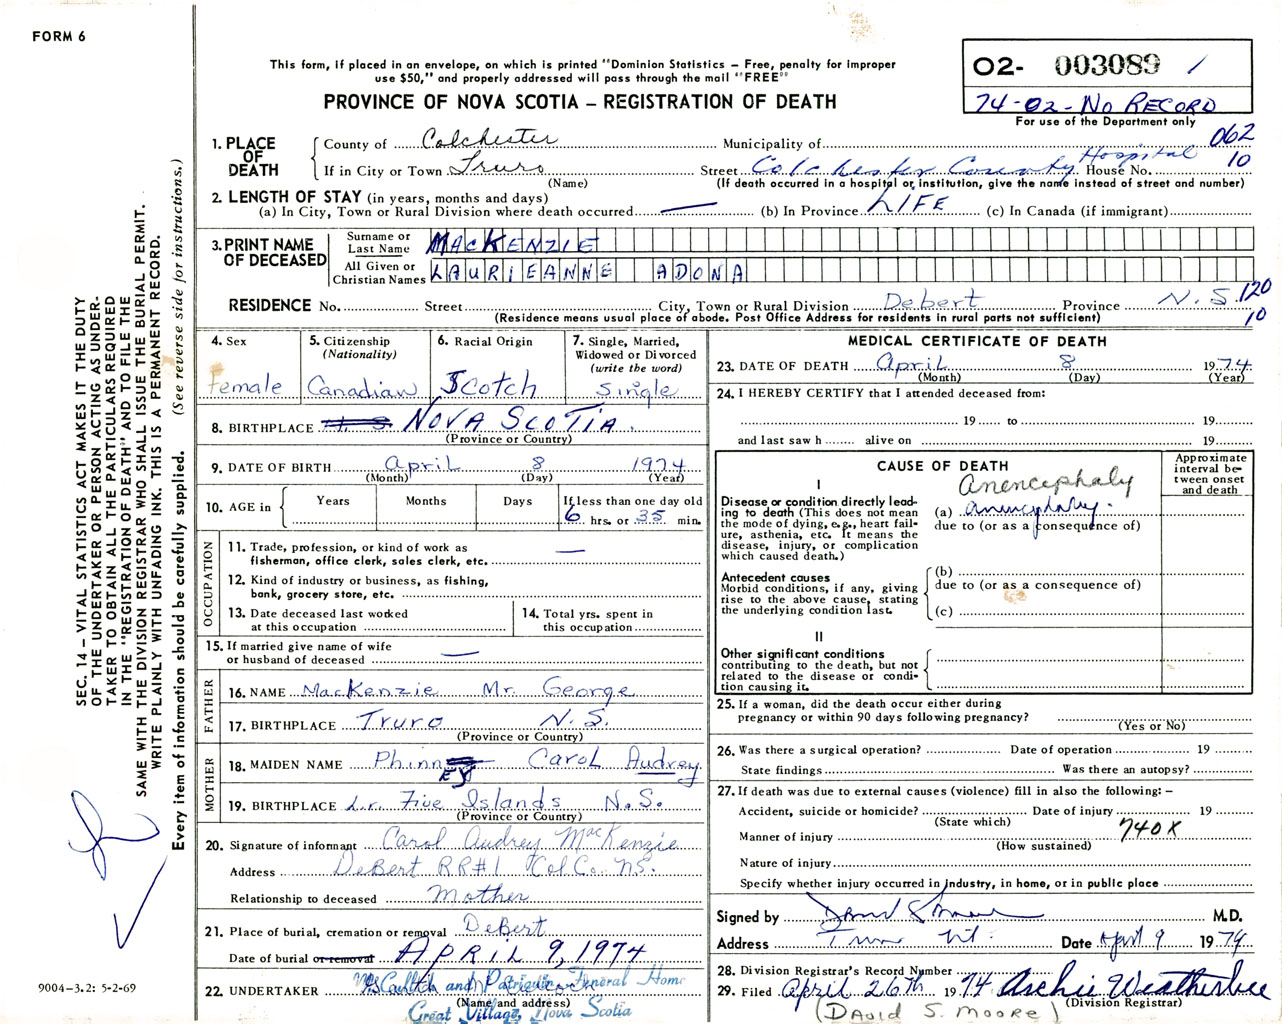 FORM 6
This form, if placed in an envelope, on which is printed "Dominion Statistics – Free, penalty for improper
use $50," and properly addressed will pass through the mail "FREE"
PROVINCE OF NOVA SCOTIA – REGISTRATION OF DEATH
02- 003089 1
74-02-No RECORD
For use of the Department only
062
10
1. PLACE OF DEATH
County of Colchester Municipality of
If in City or Town Truro Street Colchester County Hospital House No.
(Name) (If death occurred in a hospital or institution, give the name instead of street and number)
2. LENGTH OF STAY (in years, months and days)
(a) In City, Town or Rural Division where death occurred — (b) In Province LIFE (c) In Canada (if immigrant)
3. PRINT NAME OF DECEASED
Surname or Last Name MACKENZIE
All Given or Christian Names LAURIEANNE ADONA
RESIDENCE No. Street City, Town or Rural Division Debert Province N.S. 120
(Residence means usual place of abode. Post Office Address for residents in rural parts not sufficient) 10
4. Sex Female
5. Citizenship (Nationality) Canadian
6. Racial Origin Scotch
7. Single, Married, Widowed or Divorced (write the word) Single
8. BIRTHPLACE NOVA SCOTIA.
(Province or Country)
9. DATE OF BIRTH April 8 1974
(Month) (Day) (Year)
10. AGE in Years Months Days If less than one day old
6 hrs. or 35 min.
OCCUPATION
11. Trade, profession, or kind of work as
fisherman, office clerk, sales clerk, etc. —
12. Kind of industry or business, as fishing,
bank, grocery store, etc.
13. Date deceased last worked
at this occupation
14. Total yrs. spent in
this occupation
15. If married give name of wife
or husband of deceased —
FATHER
16. NAME MacKenzie Mr. George
17. BIRTHPLACE Truro N.S.
(Province or Country)
MOTHER
18. MAIDEN NAME PhinnEy Carol Audrey
19. BIRTHPLACE Lr. Five Islands N.S.
(Province or Country)
20. Signature of informant Carol Audrey MacKenzie
Address DeBert RR#1 Col Co. NS.
Relationship to deceased Mother
21. Place of burial, cremation or removal DeBert
Date of burial or removal APRIL 9, 1974
22. UNDERTAKER and Patriquin Funeral Home
(Name and address)
Great Village, Nova Scotia
MEDICAL CERTIFICATE OF DEATH
23. DATE OF DEATH April 8 1974
(Month) (Day) (Year)
24. I HEREBY CERTIFY that I attended deceased from:
19 to 19
and last saw h alive on 19
CAUSE OF DEATH
Approximate interval between onset and death
I
Anencephaly
Disease or condition directly leading to death (This does not mean the mode of dying, e.g., heart failure, asthenia, etc. It means the disease, injury, or complication which caused death.)
(a) anencephaly.
due to (or as a consequence of)
Antecedent causes
Morbid conditions, if any, giving rise to the above cause, stating the underlying condition last.
(b)
due to (or as a consequence of)
(c)
II
Other significant conditions
contributing to the death, but not related to the disease or condition causing it.
25. If a woman, did the death occur either during
pregnancy or within 90 days following pregnancy?
(Yes or No)
26. Was there a surgical operation? Date of operation 19
State findings Was there an autopsy?
27. If death was due to external causes (violence) fill in also the following: –
Accident, suicide or homicide? Date of injury 19
(State which) 740X
Manner of injury
(How sustained)
Nature of injury
Specify whether injury occurred in industry, in home, or in public place
Signed by David S Moore M.D.
Address Truro N.S. Date April 9 1974
28. Division Registrar's Record Number
29. Filed April 26th 1974 Archie Weatherbee
(Division Registrar)
(DAVID S. MOORE)
SEC. 14 – VITAL STATISTICS ACT MAKES IT THE DUTY
OF THE UNDERTAKER OR PERSON ACTING AS UNDER-
TAKER TO OBTAIN ALL THE PARTICULARS REQUIRED
IN THE "REGISTRATION OF DEATH" AND TO FILE THE
SAME WITH THE DIVISION REGISTRAR WHO SHALL ISSUE THE BURIAL PERMIT.
WRITE PLAINLY WITH UNFADING INK. THIS IS A PERMANENT RECORD.
Every item of information should be carefully supplied. (See reverse side for instructions.)
9004-3.2: 5-2-69